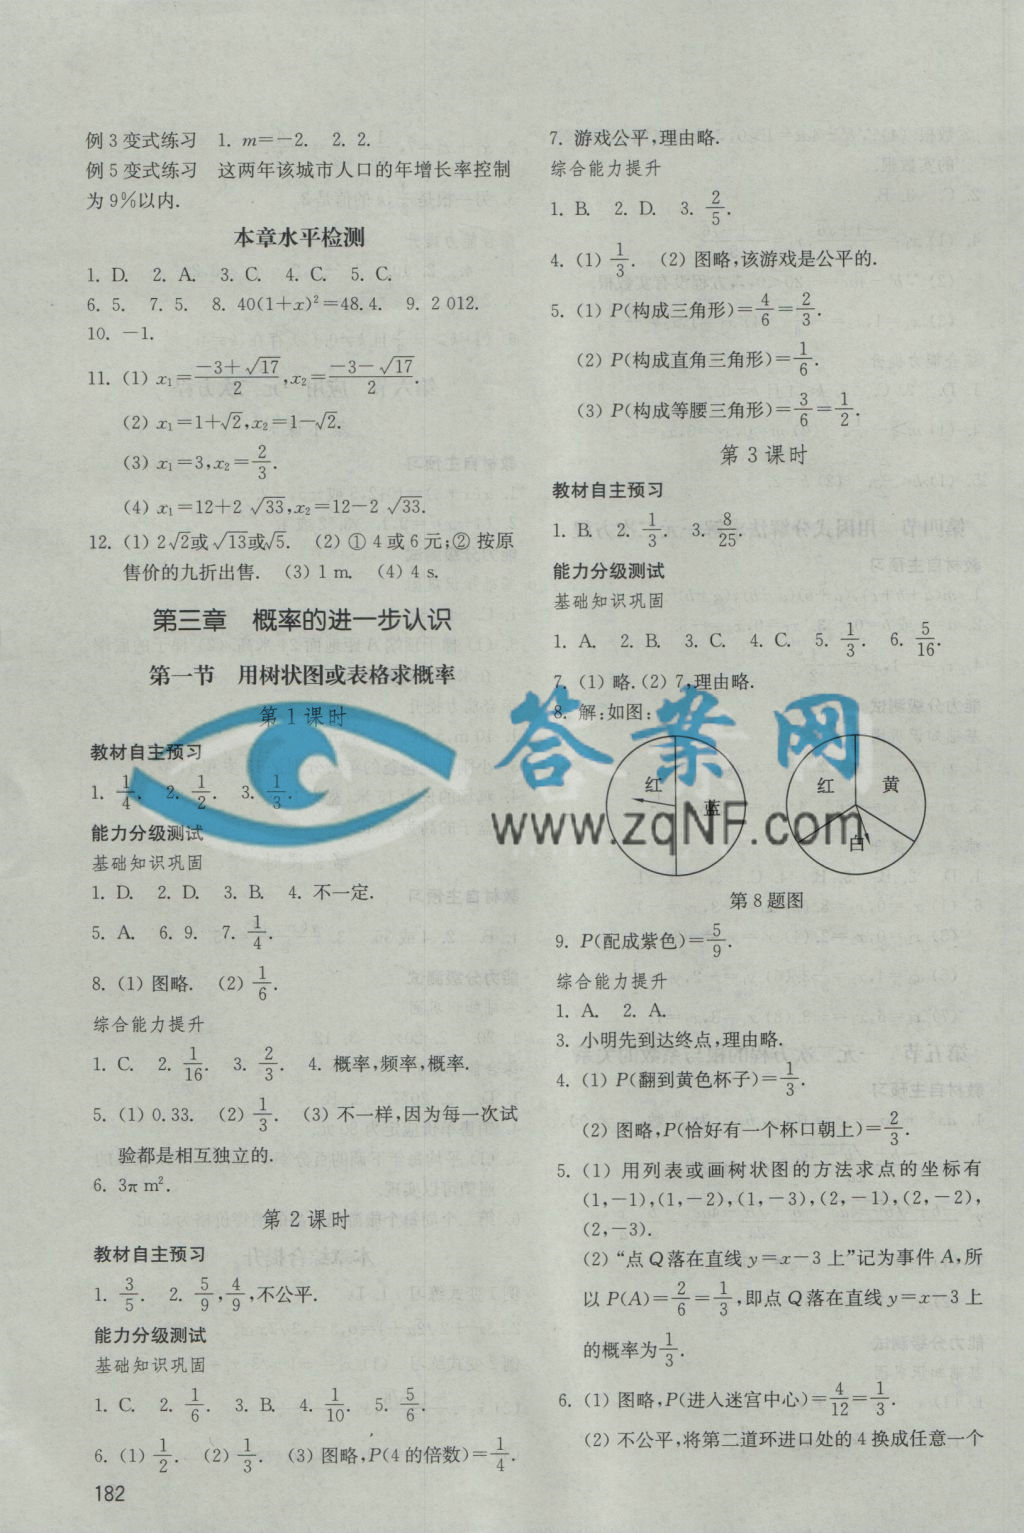 例3变式练习　1. m=-2.　2. 2.
例5变式练习　这两年该城市人口的年增长率控制
为9%以内.
本章水平检测
1. D.　2. A.　3. C.　4. C.　5. C.
6. 5.　7. 5.　8. 40(1+x)²=48.4.　9. 2 012.
10. -1.
11. (1) x₁=(-3+√17)/2, x₂=(-3-√17)/2.
(2) x₁=1+√2, x₂=1-√2.
(3) x₁=3, x₂=2/3.
(4) x₁=12+2√33, x₂=12-2√33.
12. (1) 2√2或√13或√5.　(2) ① 4或6元;② 按原
售价的九折出售.　(3) 1 m.　(4) 4 s.
第三章　概率的进一步认识
第一节　用树状图或表格求概率
第1课时
教材自主预习
1. 1/4.　2. 1/2.　3. 1/3.
能力分级测试
基础知识巩固
1. D.　2. D.　3. B.　4. 不一定.
5. A.　6. 9.　7. 1/4.
8. (1) 图略.　(2) 1/6.
综合能力提升
1. C.　2. 1/16.　3. 2/3.　4. 概率,频率,概率.
5. (1) 0.33.　(2) 1/3.　(3) 不一样,因为每一次试
验都是相互独立的.
6. 3π m².
第2课时
教材自主预习
1. 3/5.　2. 5/9, 4/9,不公平.
能力分级测试
基础知识巩固
1. C.　2. 1/6.　3. B.　4. 1/10.　5. 5/6.
6. (1) 1/2.　(2) 1/3.　(3) 图略,P(4的倍数)=1/4.
182
7. 游戏公平,理由略.
综合能力提升
1. B.　2. D.　3. 2/5.
4. (1) 1/3.　(2) 图略,该游戏是公平的.
5. (1) P(构成三角形)=4/6=2/3.
(2) P(构成直角三角形)=1/6.
(3) P(构成等腰三角形)=3/6=1/2.
第3课时
教材自主预习
1. B.　2. 1/3.　3. 8/25.
能力分级测试
基础知识巩固
1. A.　2. B.　3. C.　4. C.　5. 1/3.　6. 5/16.
7. (1) 略. (2) 7,理由略.
8. 解:如图:
答案网
www.zqNF.com
红　蓝　红　黄
白
第8题图
9. P(配成紫色)=5/9.
综合能力提升
1. A.　2. A.
3. 小明先到达终点,理由略.
4. (1) P(翻到黄色杯子)=1/3.
(2) 图略,P(恰好有一个杯口朝上)=2/3.
5. (1) 用列表或画树状图的方法求点的坐标有
(1,-1),(1,-2),(1,-3),(2,-1),(2,-2),
(2,-3).
(2) “点Q落在直线y=x-3上”记为事件A,所
以P(A)=2/6=1/3,即点Q落在直线y=x-3上
的概率为1/3.
6. (1) 图略,P(进入迷宫中心)=4/12=1/3.
(2) 不公平,将第二道环进口处的4换成任意一个